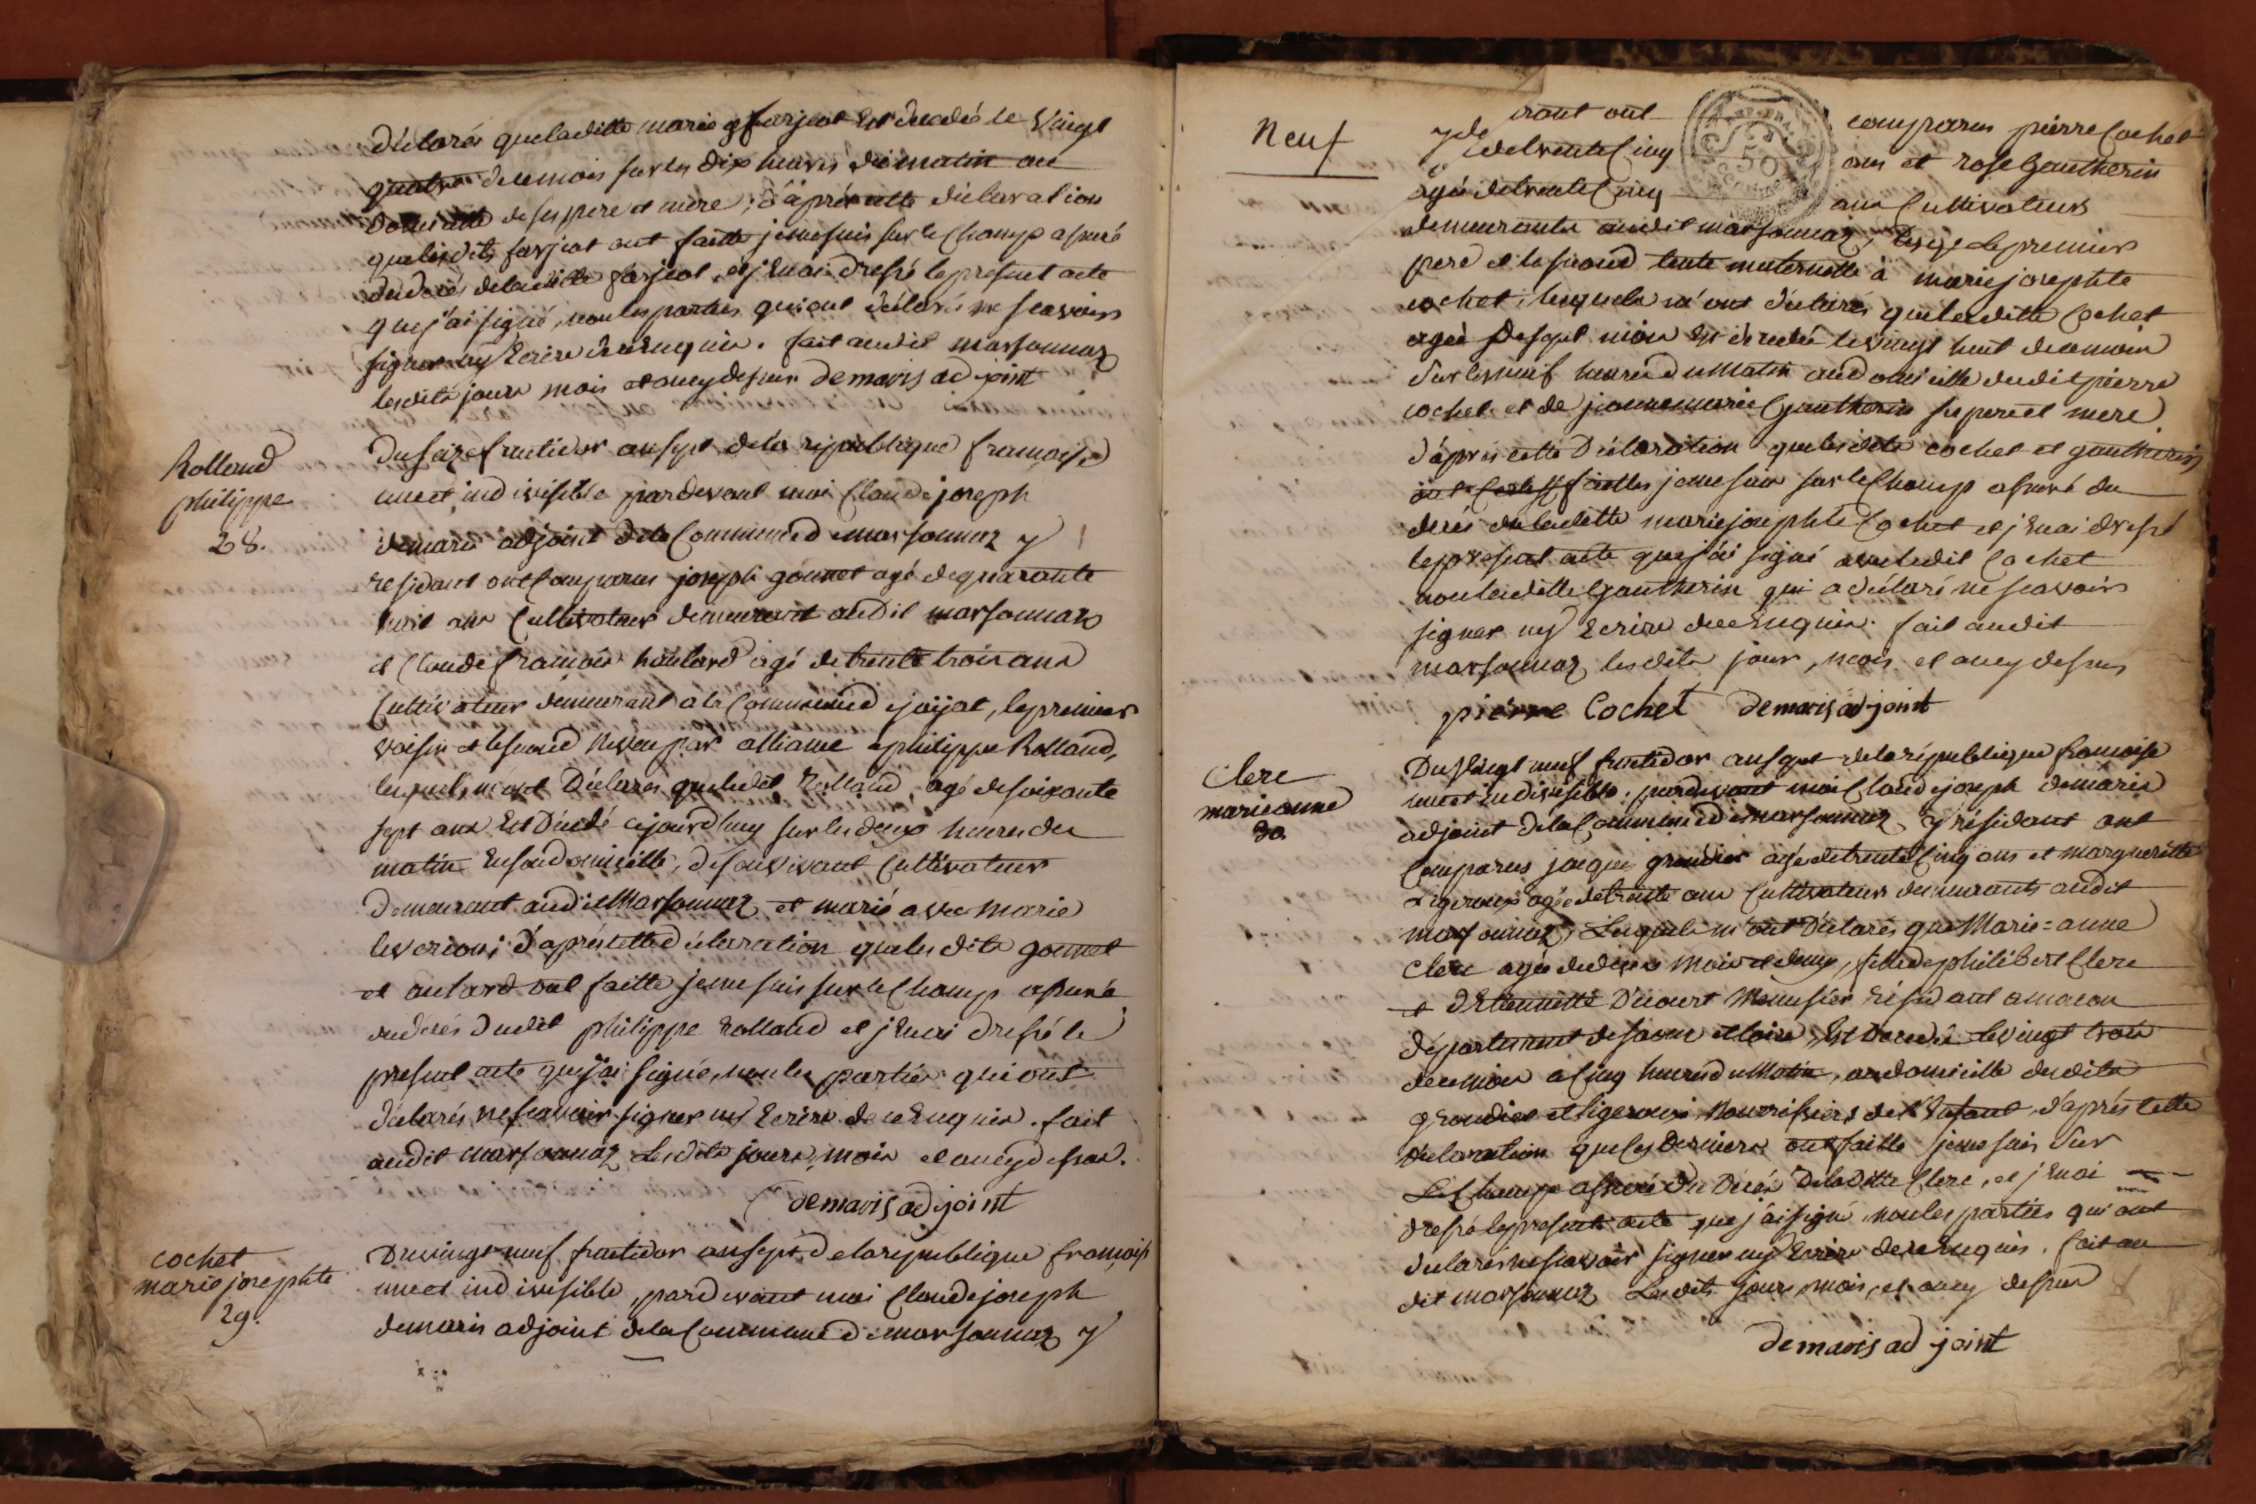 Déclarés que laditte marie farjeot Est decedée le Vingt
quatre de ce mois sur les dix heures du matin au
domicille de ses pere et mere, d'après cette déclaration
que lesdits farjeot ont faitte je me suis sur le champ assuré
du decés de laditte farjeot, et j'En ai dressé le present acte
que j'ai signé, non les parties qui ont déclaré ne scavoir
signer ny Ecrire de ce Enquis. fait audit marsonnaz
lesdits jour mois et an cy dessus demaris adjoint
Rolland
philippe
28.
Du seize fructidor an sept de la république française
une et indivisible pardevant moi Claude joseph
demaris adjoint de la Commune de marsonnaz y
residant ont Comparus joseph gonnet agé de quarante
huit ans Cultivateur demeurant audit marsonnaz
et Claude françois houlard agé de trente trois ans
Cultivateur demeurant a la Commune de jayat, le premier
voisin et le second Neveu par alliance a philippe Rolland,
lesquels m'ont Déclarés que ledit Rolland, agé de soixante
sept ans Est Décédé cejourd'huy sur les deux heures du
matin En son domicille, de son vivant Cultivateur
Demeurant audit Marsonnaz, et marié avec marie
d'après cette déclaration que lesdits gonnet
et oulard ont faitte je me suis sur le Champ assuré
du decés dudit philippe Rolland et j'En ai dressé le
present acte que j'ai signé, non les parties qui ont
déclarés ne scavoir signer ny Ecrire de ce Enquis. fait
audit marsonnaz Lesdits jours, mois et an cy dessus.
demaris adjoint
cochet
marie josephte
29.
Du vingt neuf fructidor an sept de la republique françois
une et indivisible, pardevant moi Claude joseph
demaris adjoint de la Commune de marsonnaz y
Neuf
résidant ont comparus pierre Cochet
agé de trente Cinq ans et rose Gautherin
agée de trente Cinq ans Cultivateurs
demeurants audit marsonnaz, le premier
pere et le second tente maternelle à marie josephte
cochet, lesquels m'ont déclarés que laditte Cochet
agée de sept mois Est décédée le vingt huit de ce mois
Sur les neuf heures du Matin au domicille dudit pierre
cochet et de jeanne marie Gautherin ses pere et mere
d'après cette Déclaration que lesdits cochet et gautherin
ont faittes je me suis sur le Champ assuré du
decés de laditte marie josephte Cochet et j'En ai dressé
le present acte que j'ai signé avec ledit Cochet
non laditte Gautherin qui a déclaré ne scavoir
signer ny Ecrire de ce Enquis. fait audit
marsonnaz lesdits jour, mois et an cy dessus
pierre Cochet demaris adjoint
Clerc
marie anne
30.
Du Vingt neuf fructidor an sept de la république françoise
une et indivisible, pardevant moi Claude joseph demaris
adjoint de la Commune de marsonnaz y résidant ont
Comparus jacques grandier agé de trente Cinq ans et marguerite
Ligerous agée de trente ans Cultivateurs demeurants audit
marsonnaz, Lesquels m'ont Déclarés que Marie=anne
Clerc agée de mois et demy, fille de philibert Clerc
et d'Etiennette Décourt Menusier résidant a macon
département de saone et loire, Est Decedée le vingt trois
de ce mois a Cinq heures du Matin, au domicille desdits
grandier et Ligerous Nourrisiers de l'Enfant, d'après cette
Déclaration que ces derniers ont faitte je me suis Sur
Le Champ assuré du Décès de laditte Clerc, et j'En ai
dressé le present acte que j'ai signé non les parties qui ont
déclarés ne scavoir signer ny Ecrire de ce Enquis. fait au
dit marsonnaz Lesdits jours, mois, et an cy dessus
demaris adjoint